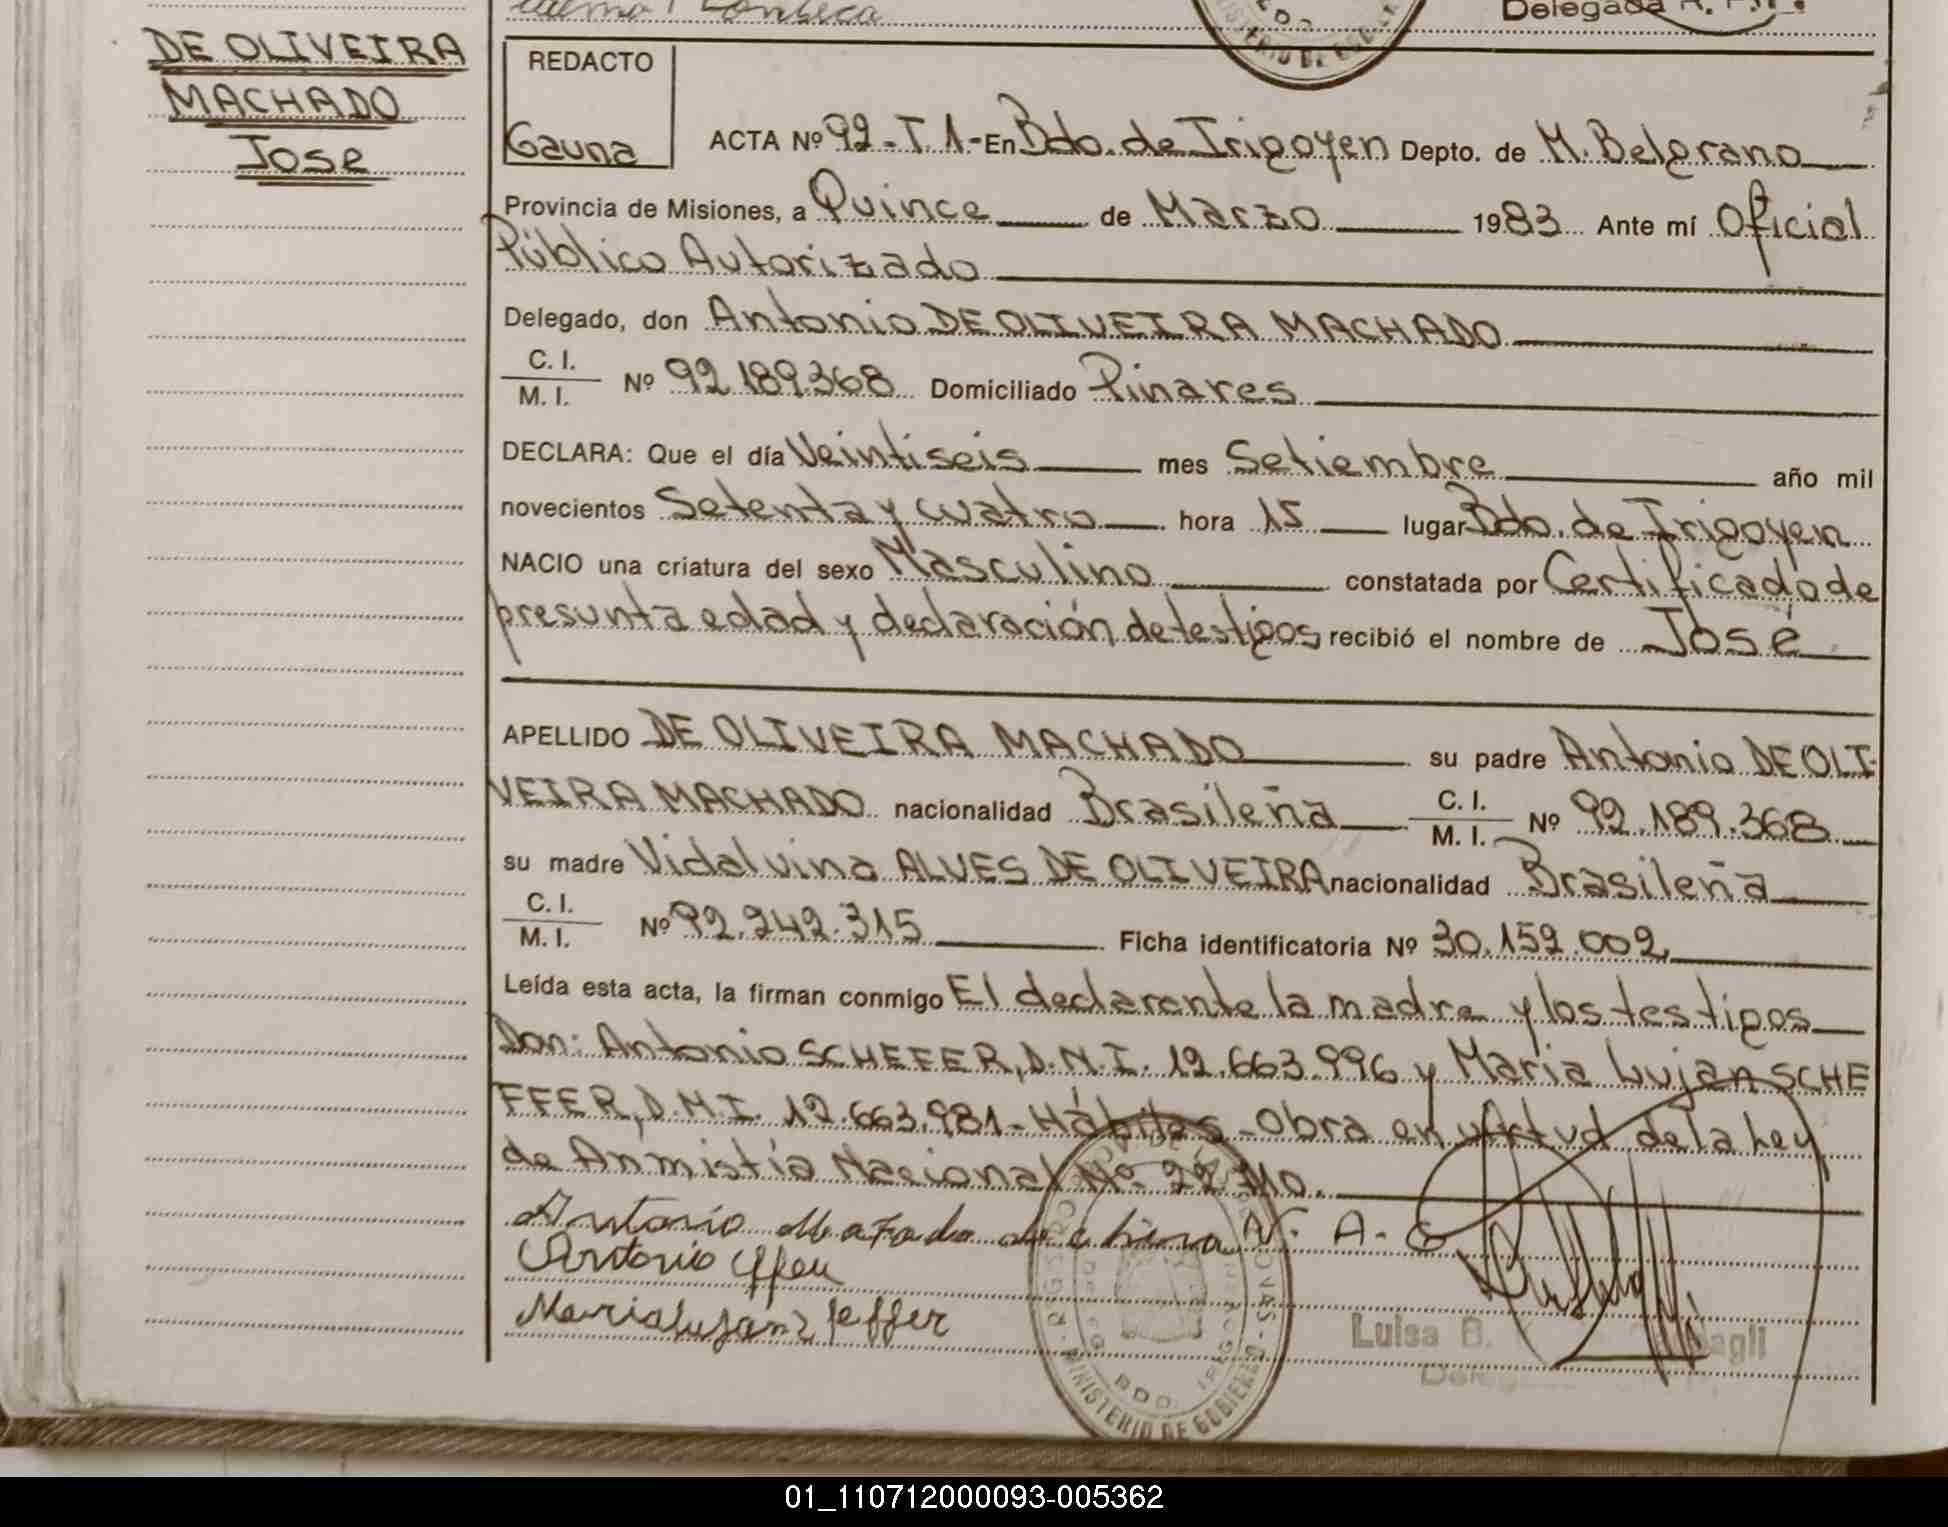 Fonseca
Delegada R. P.
MINISTERIO DE GOBIERNO
DE OLIVEIRA
MACHADO
José
REDACTO
Gauna
ACTA Nº 92-T.1.- En Bdo. de Irigoyen Depto. de M. Belgrano
Provincia de Misiones, a Quince de Marzo 1983 Ante mí Oficial
Público Autorizado
Delegado, don Antonio DE OLIVEIRA MACHADO
C. I.
M. I. Nº 92.189.368 Domiciliado Pinares
DECLARA: Que el día Veintiseis mes Setiembre año mil
novecientos Setenta y cuatro hora 15 lugar Bdo. de Irigoyen
NACIO una criatura del sexo Masculino constatada por Certificado de
presunta edad y declaración de testigos recibió el nombre de José
APELLIDO DE OLIVEIRA MACHADO su padre Antonio DE OLI-
VEIRA MACHADO nacionalidad Brasileña C. I.
M. I. Nº 92.189.368
su madre Vidalvina ALVES DE OLIVEIRA nacionalidad Brasileña
C. I.
M. I. Nº 92.242.315 Ficha identificatoria Nº 30.159.002
Leída esta acta, la firman conmigo El declarante la madre y los testigos
Don: Antonio SCHEFER, D.N.I. 12.663.996 y Maria Lujan SCHE
FFER, D.N.I. 12.663.981 - Hábiles - Obra en virtud de la Ley
de Anmistía Nacional Nº 22.710.
Antonio Mazado de liveira V. A. O
Antonio
Maria Lujan
MINISTERIO DE GOBIERNO
BDO. IRIGOYEN
Luisa B.
01_110712000093-005362